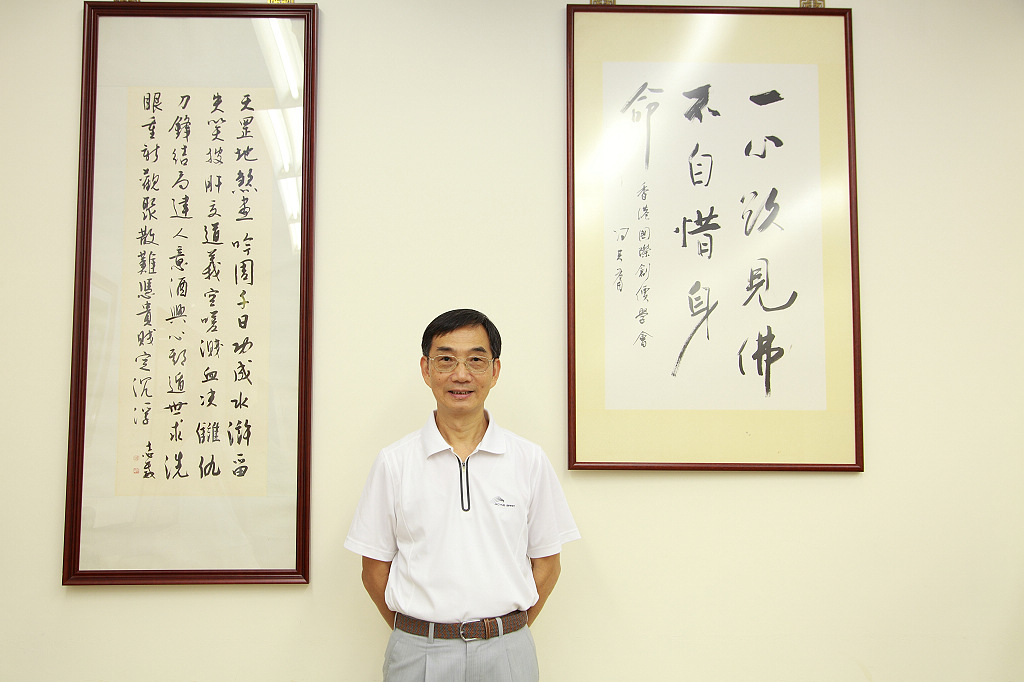 一心欲見佛
不自惜身
命
香港國際創價學會
天罡地煞盡吟周子日功成水滸留
失笑披肝交道義空嘆濺血決讎仇
刀鋒結局違人意酒興心期遁世求洗
眼重新觀聚散難憑貴賤定沉浮